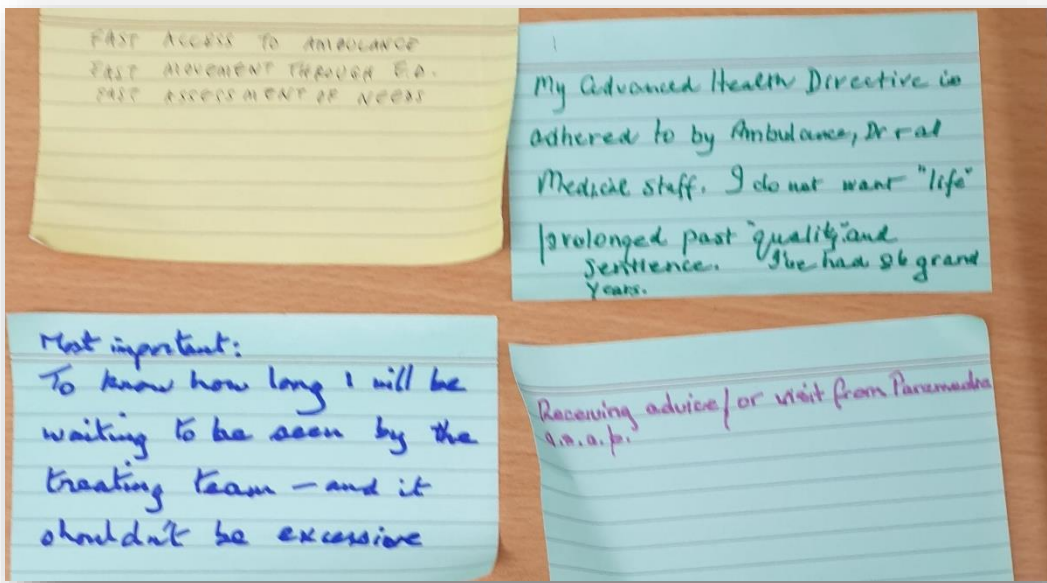 FAST ACCESS TO AMBULANCE
FAST MOVEMENT THROUGH E.D.
FAST ASSESSMENT OF NEEDS
My Advanced Health Directive is
adhered to by Ambulance, Dr + al
Medical staff. I do not want "life"
prolonged past "quality" and
sentience. I've had 86 grand
years.
Most important:
To know how long I will be
waiting to be seen by the
treating team – and it
shouldn't be excessive
Receiving advice/or visit from
a.s.a.p.